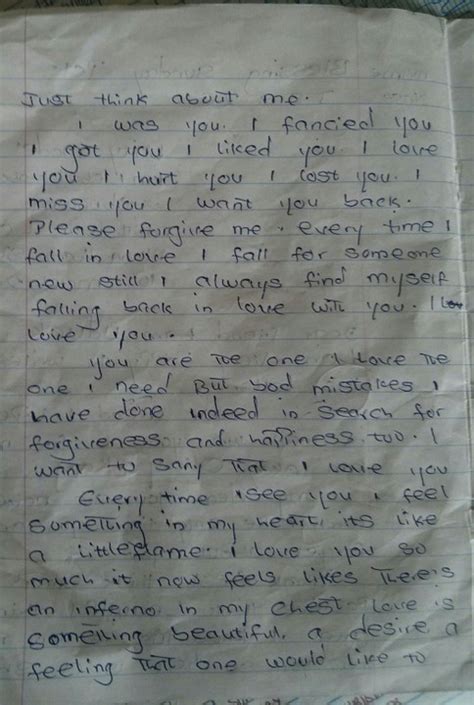 Just think about me.
I was you. I fancied you
I got you I liked you. I love
you I hurt you I lost you. I
miss you I want you back.
Please forgive me. every time I
fall in love I fall for someone
new still I always find myself
falling back in love with you. I
love you.
You are the one I love the
one I need But bad mistakes I
have done indeed in search for
forgiveness and happiness too. I
want to sany that I love you
Every time I see you I feel
something in my heart its like
a littleflame. I love you so
much it now feels likes there's
an inferno in my chest love is
something beautiful, a desire a
feeling that one would like to